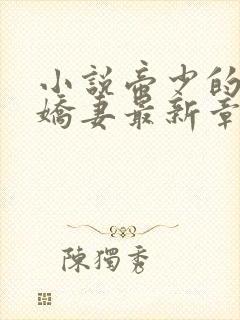 小説帝少的
嬌妻最新章
陳獨秀